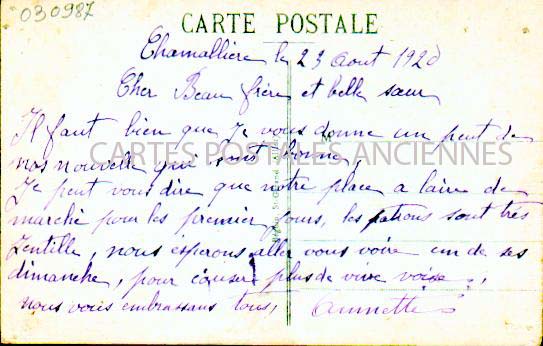 030987
CARTE POSTALE
Chamallière le 23 Aout 1920
Cher Beau frère et belle sœur
Il faut bien que Je vous donne un peut de
nos nouvelle qui sont bonne,
CARTES POSTALES ANCIENNES
Je peut vous dire que notre place a laire de
marché pour les premier jours, les patrons sont très
Jentille, nous ésperons aller vous voire un de ses
dimanche, pour causer plus de vive voise,
nous vous embrassans tous, Annette